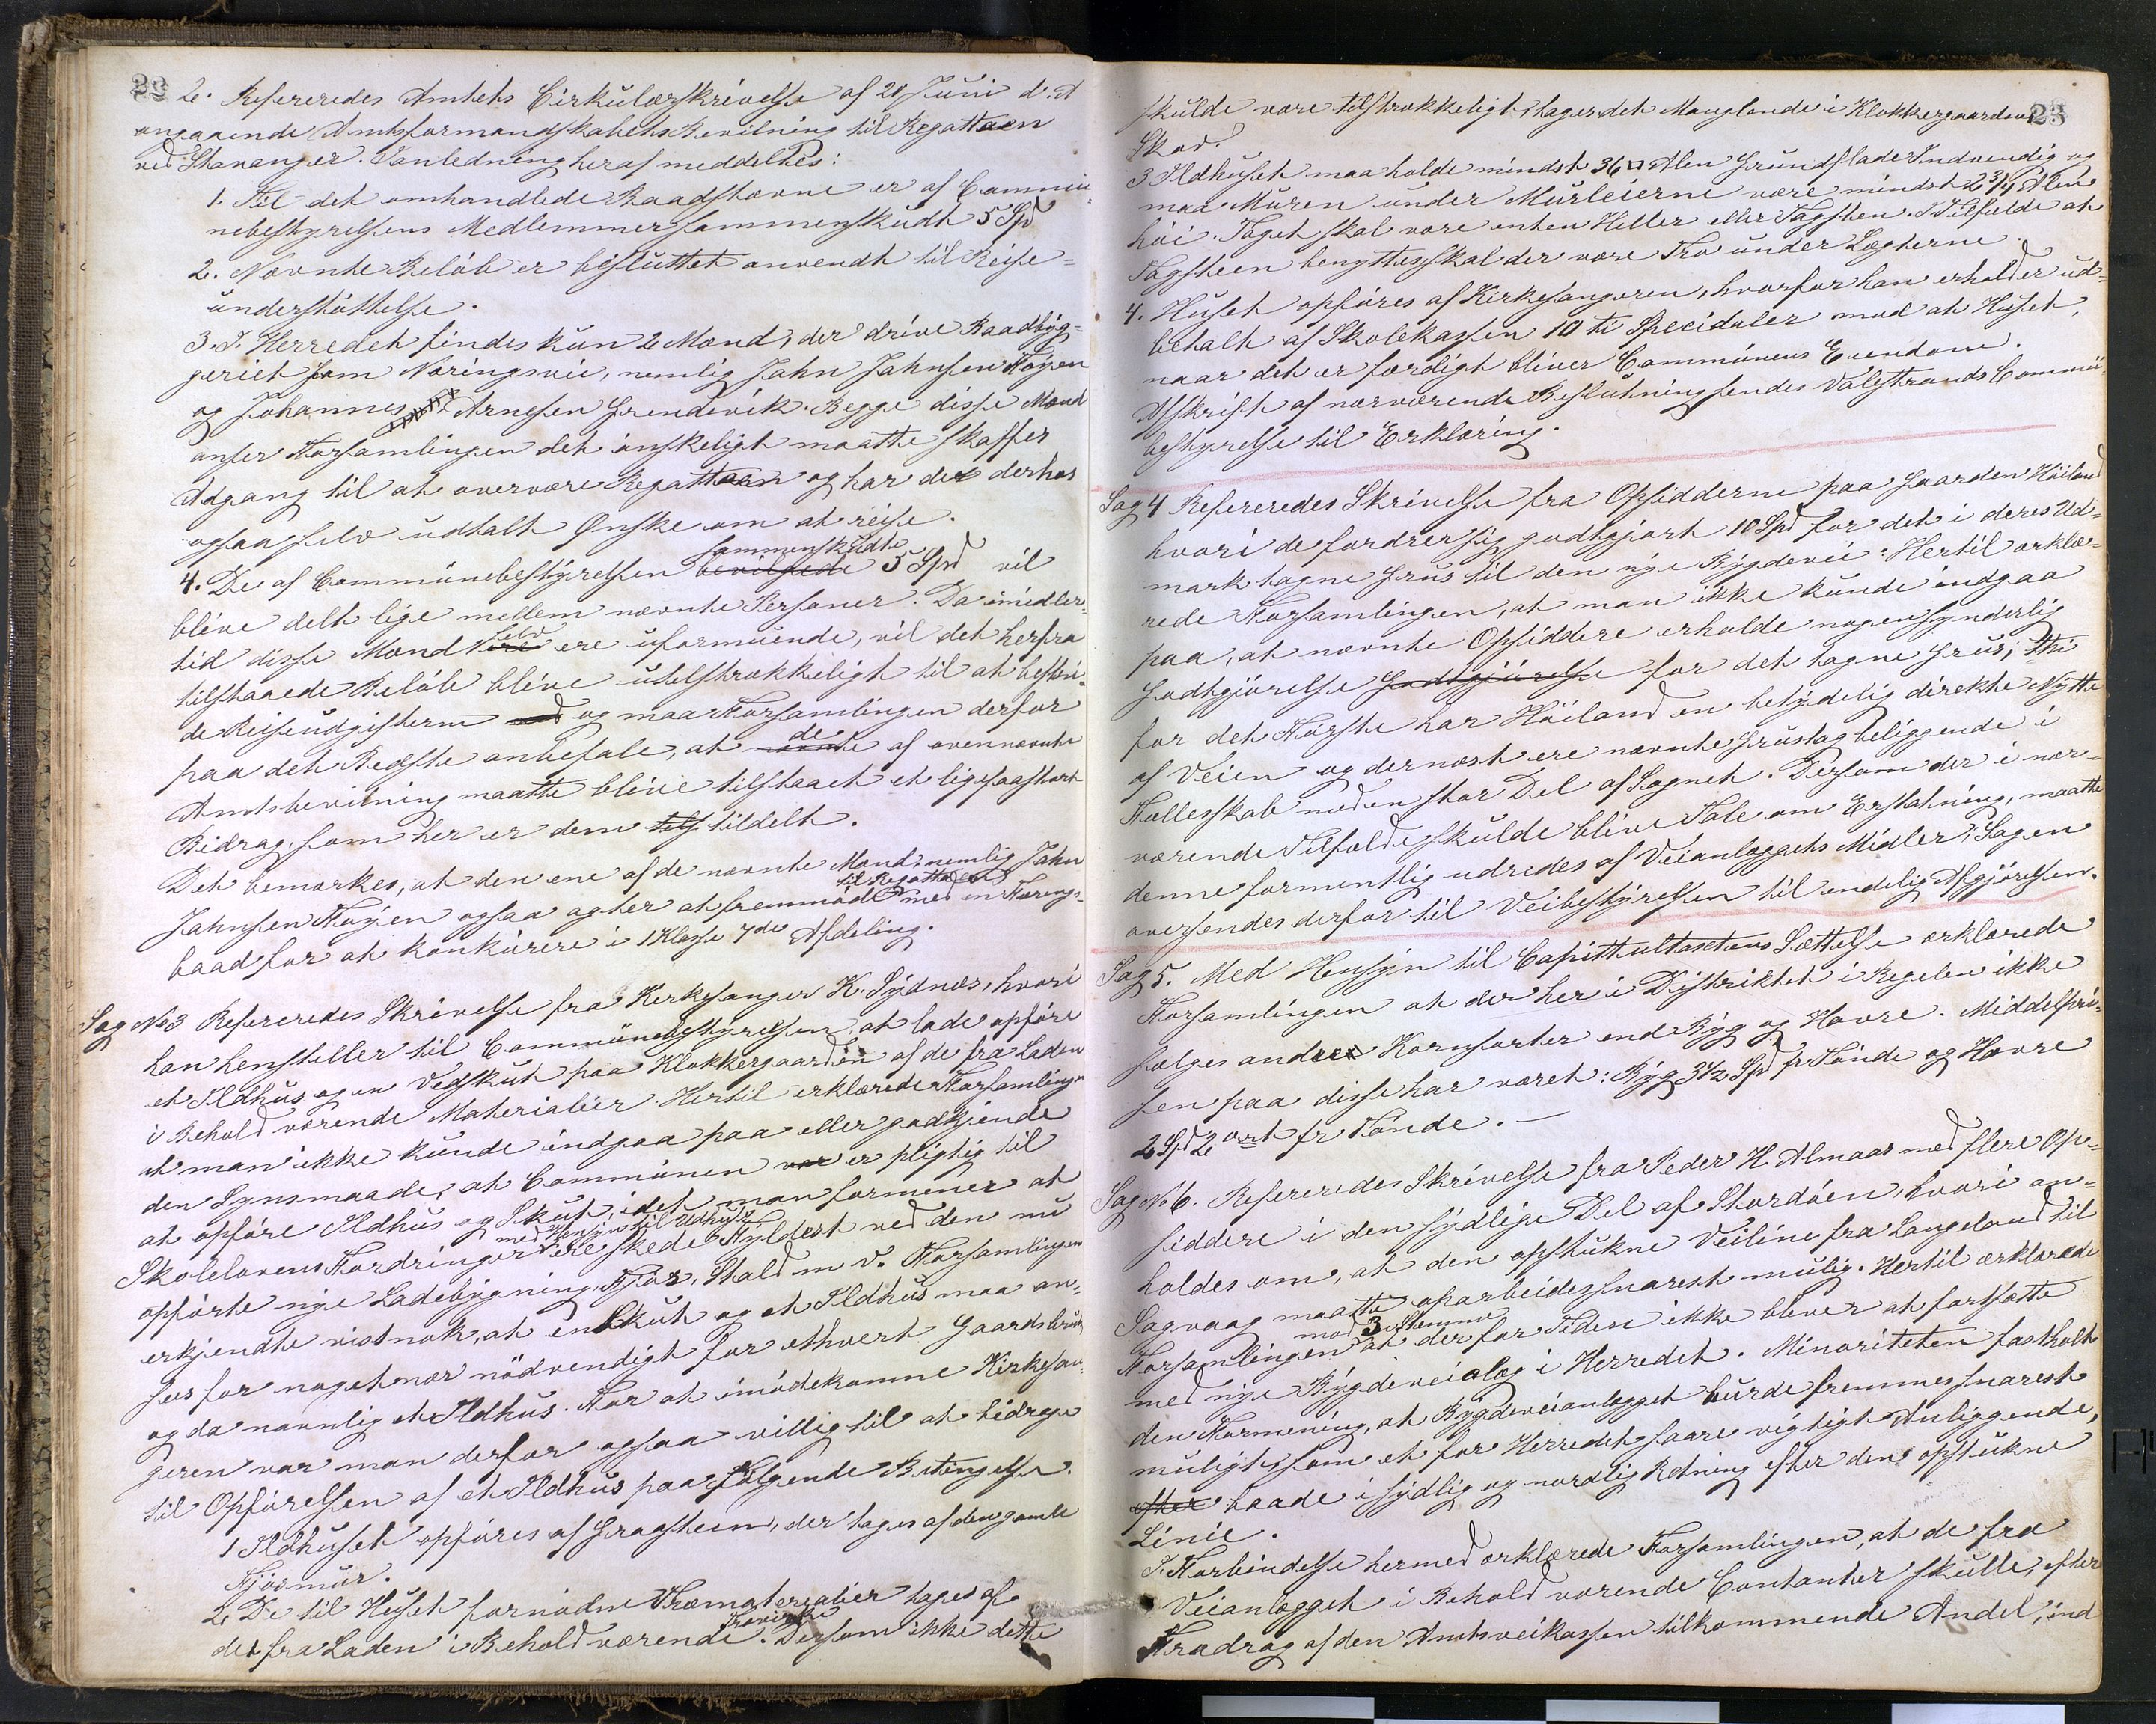 22
2. Refereredes Amtets Cirkulærskrivelse af 20 Juni d. A
angaaende Amtsformandskabets Bevilning til Regattaen
ved Stavanger. I anledning heraf meddeltes:
1. Til det omhandlede Baadstævne er af Commu-
nebestyrelsens Medlemmer sammenskudt 5 Spd
2. Nævnte Beløb er besluttet anvendt til Reise-
understøttelse.
3. I Herredet findes kun 2 Mænd, der drive Baadbyg-
geriet som Næringsvei, nemlig Jahn Jahnsen Føyen
og Johannes Arnesen Grendevik. Begge disse Mænd
anser Forsamlingen det ønskeligt maatte skaffes
Adgang til at overvære Regattaen og har de derhos
ogsaa selv udtalt Ønske om at reise.
sammenskudte
4. De af Communebestyrelsen bevilgede 5 Spd vil
blive delt lige mellem nævnte Personer. Da imidler-
tid disse Mænd selv ere uformuende, vil det herfra
tilstaaede Beløb blive utilstrækkeligt til at bestri-
de Reiseudgifterne og maa Forsamlingen derfor
paa det Bedste anbefale, at de af ovennævnte
Amtsbevilning maatte blive tilstaaet et ligesaastort
Bidrag, som her er dem tildelt.
Det bemærkes, at den ene af de nævnte Mænd, nemlig Jahn
til Regattaen
Jahnsen Føyen ogsaa agter at fremmøde med en Færings-
baad for at konkurere i 1 Klasse 7de Afdeling.
Sag No 3 Refereredes Skrivelse fra Kirkesanger K. Sydnes, hvori
han henstiller til Communebestyrelsen at lade opføre
et Ildhus og en Vedskut paa Klokkergaarden af de fra Laden
i Behold værende Materialier. Hertil erklærede Forsamlingen
at man ikke kunde indgaa paa eller godkjende
den Synsmaade, at Communen var er pligtig til
at opføre Ildhus og Skut, idet man formener at
med Hensyn til Udhuse
Skolelovens Fordringer ere skede Fyldest ved den nu
opførte nye Ladebygning, Fjøs, Stald m v. Forsamlingen
erkjendte vistnok, at en Skut og et Ildhus maa an-
sees for noget nær nødvendigt for ethvert Gaardsbrug
og da navnlig et Ildhus. For at imødekomme Kirkesan-
geren var man derfor ogsaa villig til at bidrage
til Opførelsen af et Ildhus paa følgende Betingelse.
1 Ildhuset opføres af Graasteen, der tages af den gamle
Fjøsmur.
2. De til Huset fornødne Træmaterialier tages af
Trævirke
det fra Laden i Behold værende. Dersom ikke dette
23
skulde være tilstrækkeligt, tages det Manglende i Klokkergaardens
Skov.
3 Ildhuset maa holde mindst 36 □ Alen Grundflade Indvendig og
maa Muren under Murleierne være mindst 2 3/4 Alen
høi. Taget skal være enten Heller eller Tagsten. I Tilfælde at
Tagsteen benyttes, skal der være Tro under Lægterne.
4. Huset opføres af Kirkesangeren, hvorfor han erholder ud-
betalt af Skolekassen 10 ti Specidaler mod at Huset,
naar det er færdigt bliver Communens Eiendom.
Afskrift af nærværende Beslutning sendes Valestrands Commu-
bestyrelse til Erklæring.
Sag 4 Refereredes Skrivelse fra Opsidderne paa Gaarden Høiland
hvori de fordrer sig godtgjort 10 Spd for det i deres Ud-
mark tagne Grus til den nye Bygdevei: Hertil erklæ-
rede Forsamlingen, at man ikke kunde indgaa
paa, at nævnte Opsiddere erholde nogensynderlig
Godtgjørelse Godtgjørelse for det tagne Grus; thi
for det Første har Høiland en betydelig direkte Nytte
af Veien og dernæst ere nævnte Grustag beliggende i
Fælleskab med en stor Del af Sognet. Dersom der i nær-
værende Tilfælde skulde blive Tale om Erstatning, maatte
denne formentlig udredes af Veianlæggets Midler; Sagen
oversendes derfor til Veibestyrelsen til endelig Afgjørelsen.
Sag 5. Med Hensyn til Capittultaxtens Sættelse erklærede
Forsamlingen at der her i Distriktet i Regelen ikke
sælges andre Kornsorter end Byg og Havre. Middelpri-
sen paa disse har været: Byg 3 1/2 Spd pr Tønde og Havre
2 Spd 2 ort pr Tønde. —
Sag No 6. Refereredes Skrivelse fra Peder H. Almaas med flere Op-
siddere i den sydlige Del af Stordøen, hvori an-
holdes om, at den opstukne Veilinie fra Langeland til
Sagvaag maatte oparbeides snarest mulig. Hertil erklærede
mod 3 Stemmer
Forsamlingen at der for Tiden ikke bliver at fortsætte
med nye Bygdeveialæg i Herredet. Minoriteten fastholdt
den Formening, at Bygdeveianlægget burde fremmes snarest
muligt, som et for Herredet saare vigtigt Anliggende,
efter baade i sydlig og nordlig Retning efter den opstukne
Linie.
I Forbindelse hermed erklærede Forsamlingen, at de fra
Veianlægget i Behold værende Contanter skulle, efter
Fradrag af den Amtsveikassen tilkommende Andel, ind